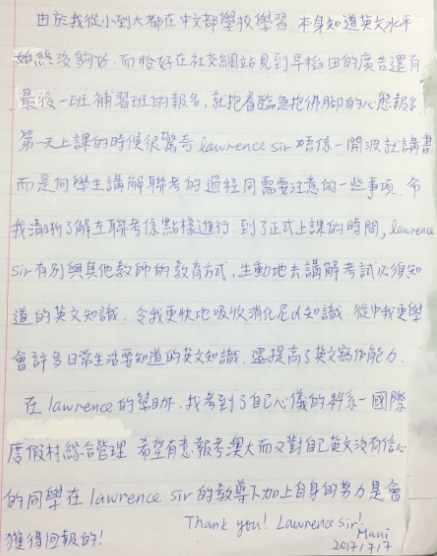 由於我從小到大都在中文部學校學習 本身知道英文水平
始終沒夠好.而恰好在社交網站見到早稻田的廣告還有
最後一班補習班的報名,就抱着臨急抱佛脚的心態報名
第一天上課的時候很驚奇lawrence sir唔係一開波就講書
而是向學生講解聯考的過程同需要注意的一些事項.令
我清晰了解左聯考係點樣進行.到了正式上課的時間,lawrence
sir有別與其他教師的教育方式,生動地去講解考試必須知
道的英文知識.令我更快地吸收消化尼d知識.從中我更學
會許多日常生活要知道的英文知識.還提高了英文寫作能力.
在lawrence的幫助下.我考到了自己心儀的科系一國際
度假村綜合管理.希望有意報考澳大而又對自己英文沒有信心
的同學在lawrence sir的教導下加上自身的努力是會
獲得回報的!
Thank you! Lawrence sir!
Mani
2017.7.17